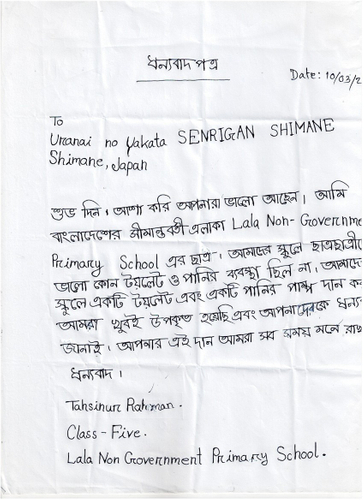 ধন্যবাদ পত্র
Date: 10/03/2
To
Uranai no Yakata SENRIGAN SHIMANE
Shimane, Japan
শুভ দিন। আশা করি আপনারা ভালো আছেন। আমি
বাংলাদেশের সীমান্তবর্তী এলাকা Lala Non-Governme
Primary School এর ছাত্র। আমাদের স্কুলে ছাত্রছাত্রী
ভালো কোন টয়লেট ও পানির ব্যবস্থা ছিল না, আমাদে
স্কুলে একটি টয়লেট এবং একটি পানির পাম্প দান ক
আমরা খুবই উপকৃত হয়েছি এবং আপনাদেরকে ধন্য
জানাই। আপনার এই দান আমরা সব সময় মনে রাখ
ধন্যবাদ।
Tahsinur Rahman.
Class-Five.
Lala Non Government Primary School.